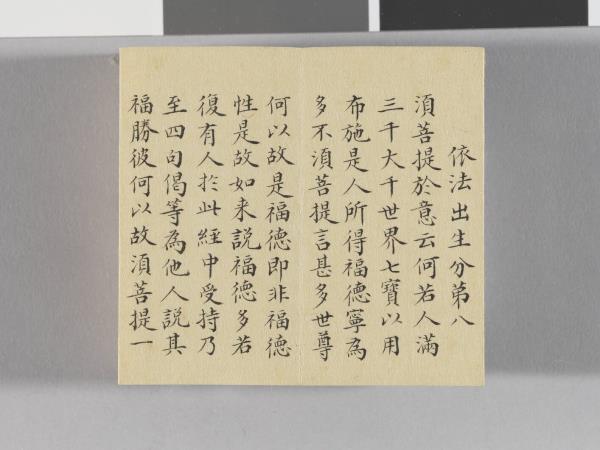 依法出生分第八
須菩提於意云何若人滿
三千大千世界七寶以用
布施是人所得福德寧為
多不須菩提言甚多世尊
何以故是福德即非福德
性是故如来說福德多若
復有人扵此經中受持乃
至四句偈等為他人說其
福勝彼何以故須菩提一